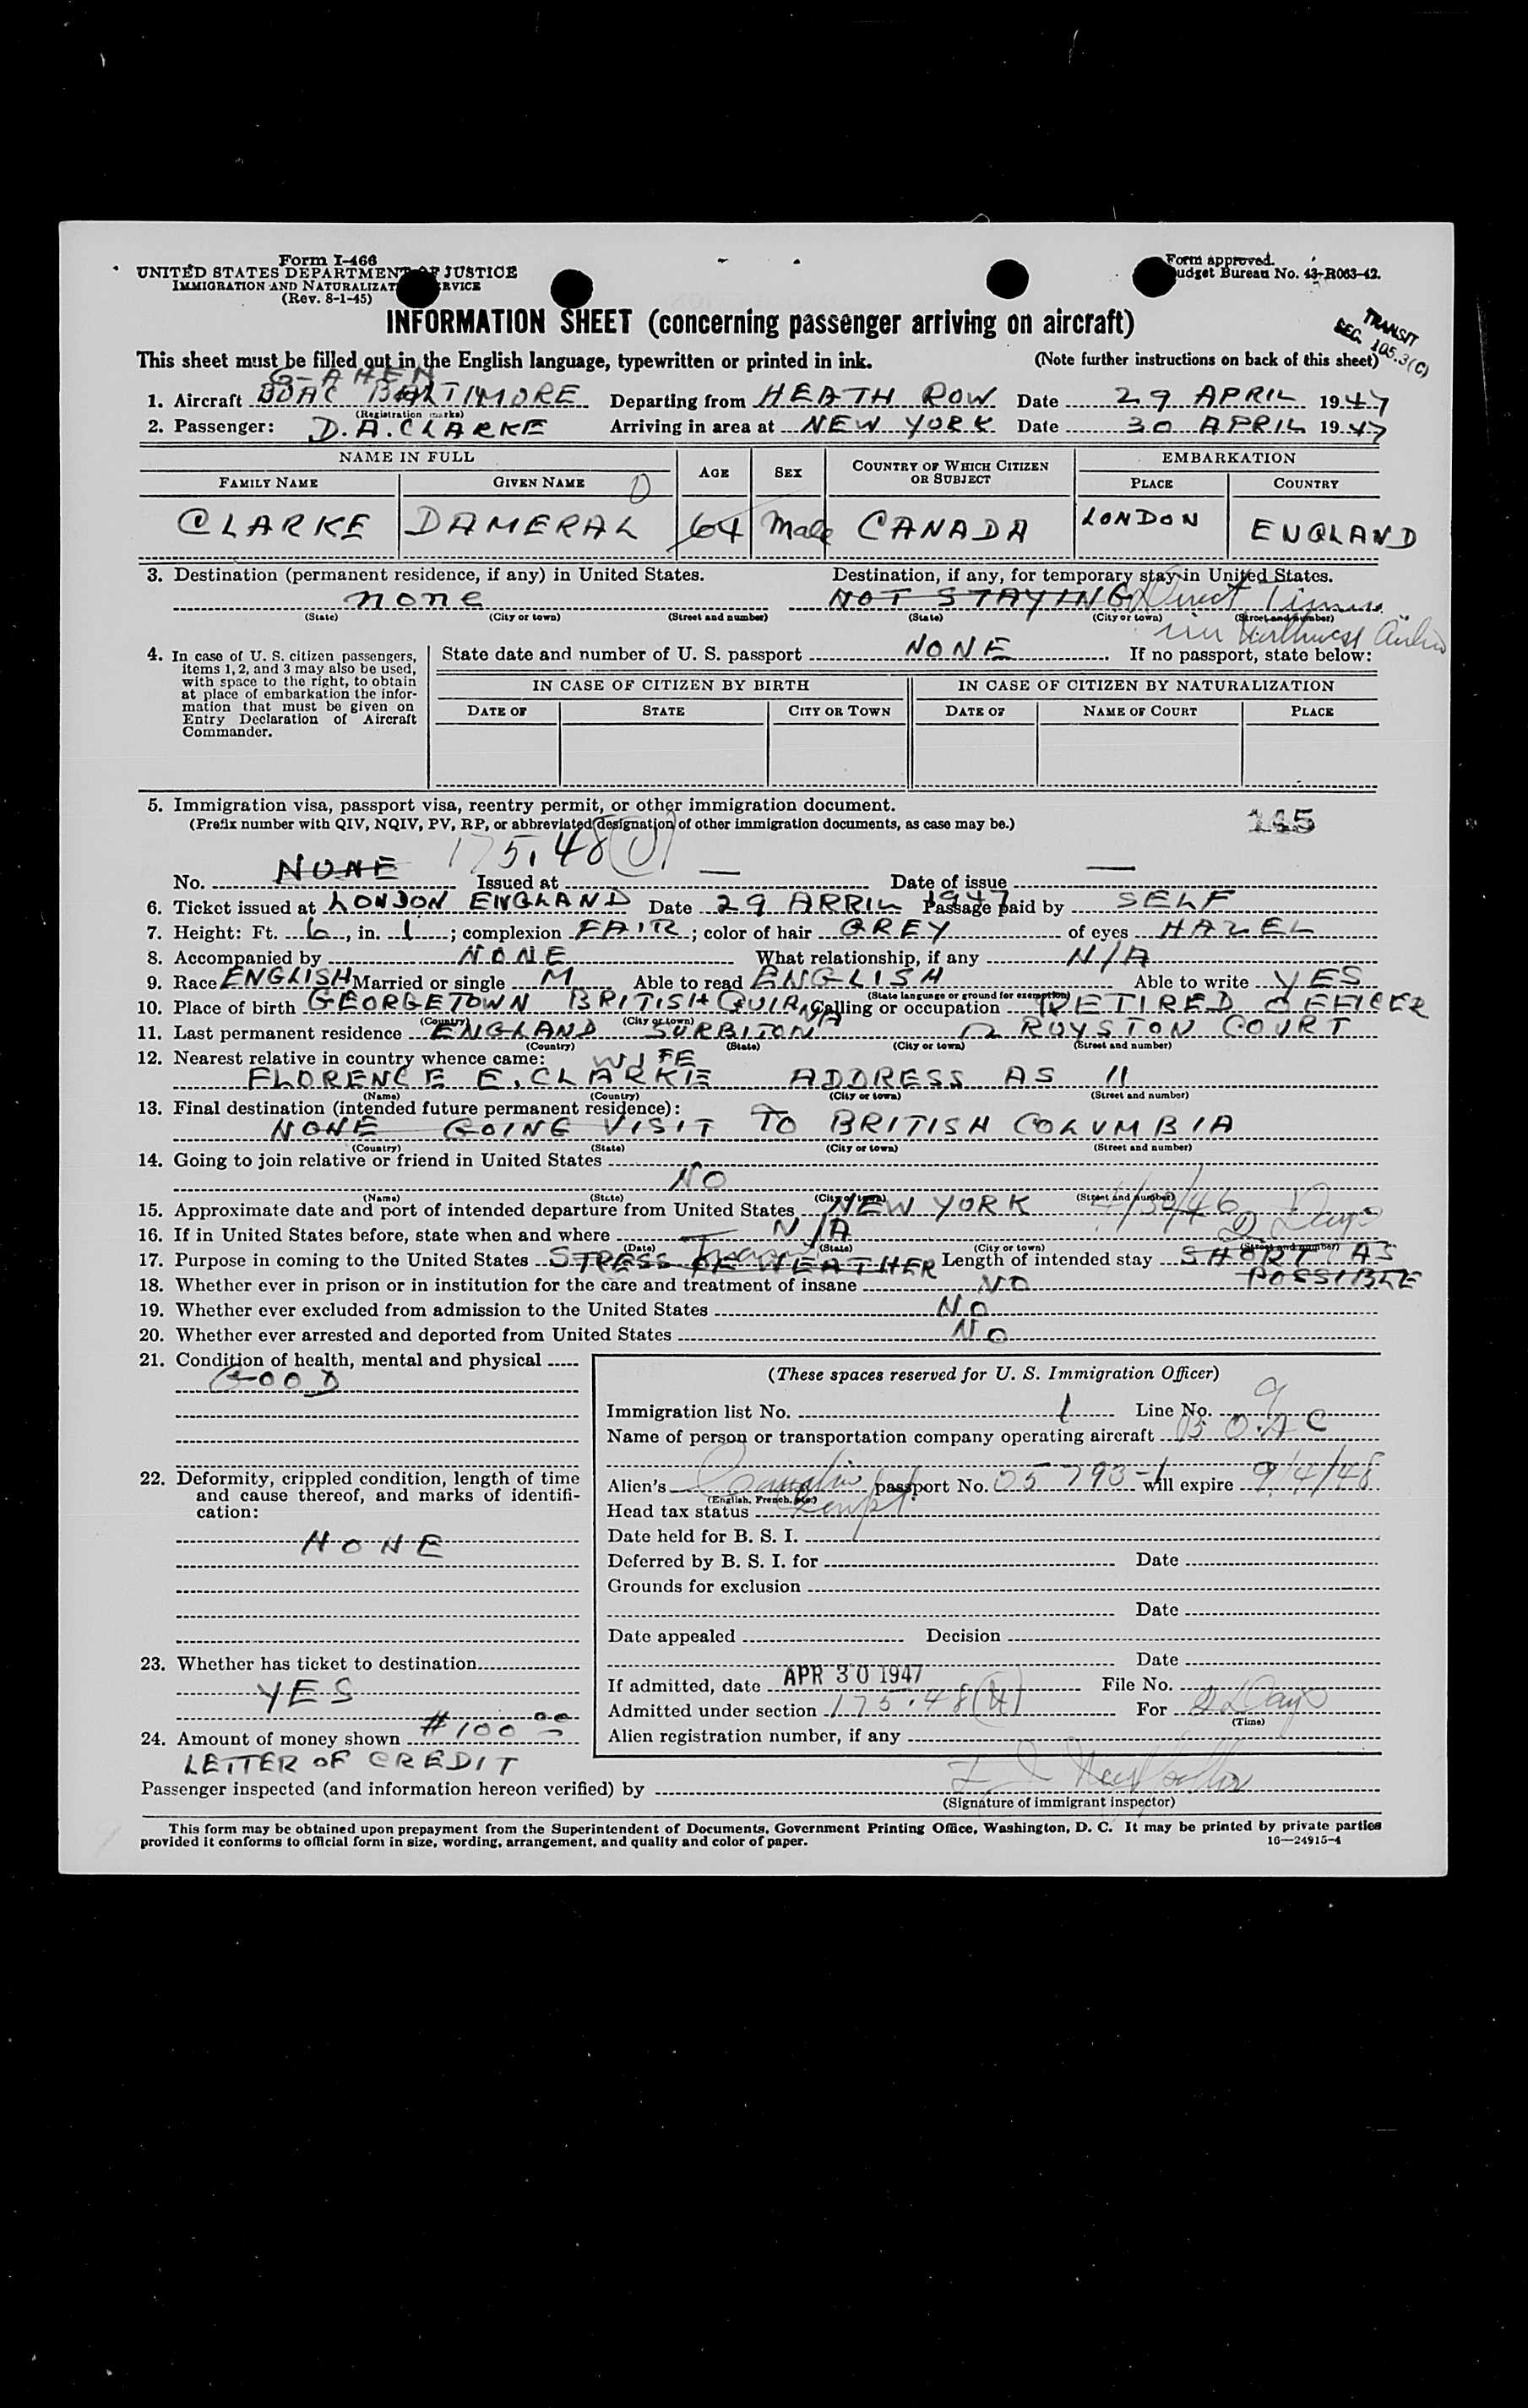 Form I-466
UNITED STATES DEPARTMENT OF JUSTICE
IMMIGRATION AND NATURALIZATION SERVICE
(Rev. 8-1-45)
Form approved.
Budget Bureau No. 43-R063-42.
INFORMATION SHEET (concerning passenger arriving on aircraft)
TRANSIT
SEC. 105.3(C)
This sheet must be filled out in the English language, typewritten or printed in ink. (Note further instructions on back of this sheet)
G-AHEN
1. Aircraft BOAC BALTIMORE Departing from HEATH ROW Date 29 APRIL 1947
(Registration marks)
2. Passenger: D.A.CLARKE Arriving in area at NEW YORK Date 30 APRIL 1947
NAME IN FULL AGE SEX COUNTRY OF WHICH CITIZEN OR SUBJECT EMBARKATION
FAMILY NAME GIVEN NAME PLACE COUNTRY
CLARKE DAMERAL 64 Male CANADA LONDON ENGLAND
3. Destination (permanent residence, if any) in United States. Destination, if any, for temporary stay in United States.
none NOT STAYING Direct
(State) (City or town) (Street and number) (State) (City or town) (Street and number)
Northwest Airlines
4. In case of U. S. citizen passengers, items 1, 2, and 3 may also be used, with space to the right, to obtain at place of embarkation the information that must be given on Entry Declaration of Aircraft Commander.
State date and number of U. S. passport NONE If no passport, state below:
IN CASE OF CITIZEN BY BIRTH IN CASE OF CITIZEN BY NATURALIZATION
DATE OF STATE CITY OR TOWN DATE OF NAME OF COURT PLACE
5. Immigration visa, passport visa, reentry permit, or other immigration document.
(Prefix number with QIV, NQIV, PV, RP, or abbreviated designation of other immigration documents, as case may be.)
145
175.48(J)
No. NONE Issued at — Date of issue —
6. Ticket issued at LONDON ENGLAND Date 29 APRIL 1947 Passage paid by SELF
7. Height: Ft. 6, in. 1; complexion FAIR; color of hair GREY of eyes HAZEL
8. Accompanied by NONE What relationship, if any N/A
9. Race ENGLISH Married or single M Able to read ENGLISH Able to write YES
(State language or ground for exemption)
10. Place of birth GEORGETOWN BRITISH GUIANA Calling or occupation RETIRED OFFICER
(Country) (City or town)
11. Last permanent residence ENGLAND SURBITON 2 ROYSTON COURT
(Country) (State) (City or town) (Street and number)
12. Nearest relative in country whence came: WIFE
FLORENCE E. CLARKE ADDRESS AS 11
(Name) (Country) (City or town) (Street and number)
13. Final destination (intended future permanent residence):
NONE GOING VISIT TO BRITISH COLUMBIA
(Country) (State) (City or town) (Street and number)
14. Going to join relative or friend in United States
NO
(Name) (State) (City or town) (Street and number)
15. Approximate date and port of intended departure from United States NEW YORK 4/30/46
2 Days
16. If in United States before, state when and where N/A
(Date) (State) (City or town) (Street and number)
17. Purpose in coming to the United States STRESS OF WEATHER Transit Length of intended stay SHORT AS POSSIBLE
18. Whether ever in prison or in institution for the care and treatment of insane NO
19. Whether ever excluded from admission to the United States NO
20. Whether ever arrested and deported from United States NO
21. Condition of health, mental and physical
GOOD
22. Deformity, crippled condition, length of time and cause thereof, and marks of identification:
NONE
23. Whether has ticket to destination
YES
24. Amount of money shown #100 00
LETTER OF CREDIT
(These spaces reserved for U. S. Immigration Officer)
Immigration list No. 1 Line No. 9
Name of person or transportation company operating aircraft BOAC
Alien's Canadian passport No. 05793-1 will expire 9/4/48
(English, French, etc.)
Head tax status Exempt
Date held for B. S. I.
Deferred by B. S. I. for Date
Grounds for exclusion
Date
Date appealed Decision
Date
If admitted, date APR 30 1947 File No.
Admitted under section 175.48(4) For 2 Days
(Time)
Alien registration number, if any
Passenger inspected (and information hereon verified) by
(Signature of immigrant inspector)
This form may be obtained upon prepayment from the Superintendent of Documents, Government Printing Office, Washington, D. C. It may be printed by private parties
provided it conforms to official form in size, wording, arrangement, and quality and color of paper. 16—24915-4